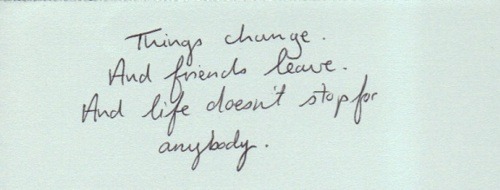 Things change.
And friends leave.
And life doesn't stop for
anybody.